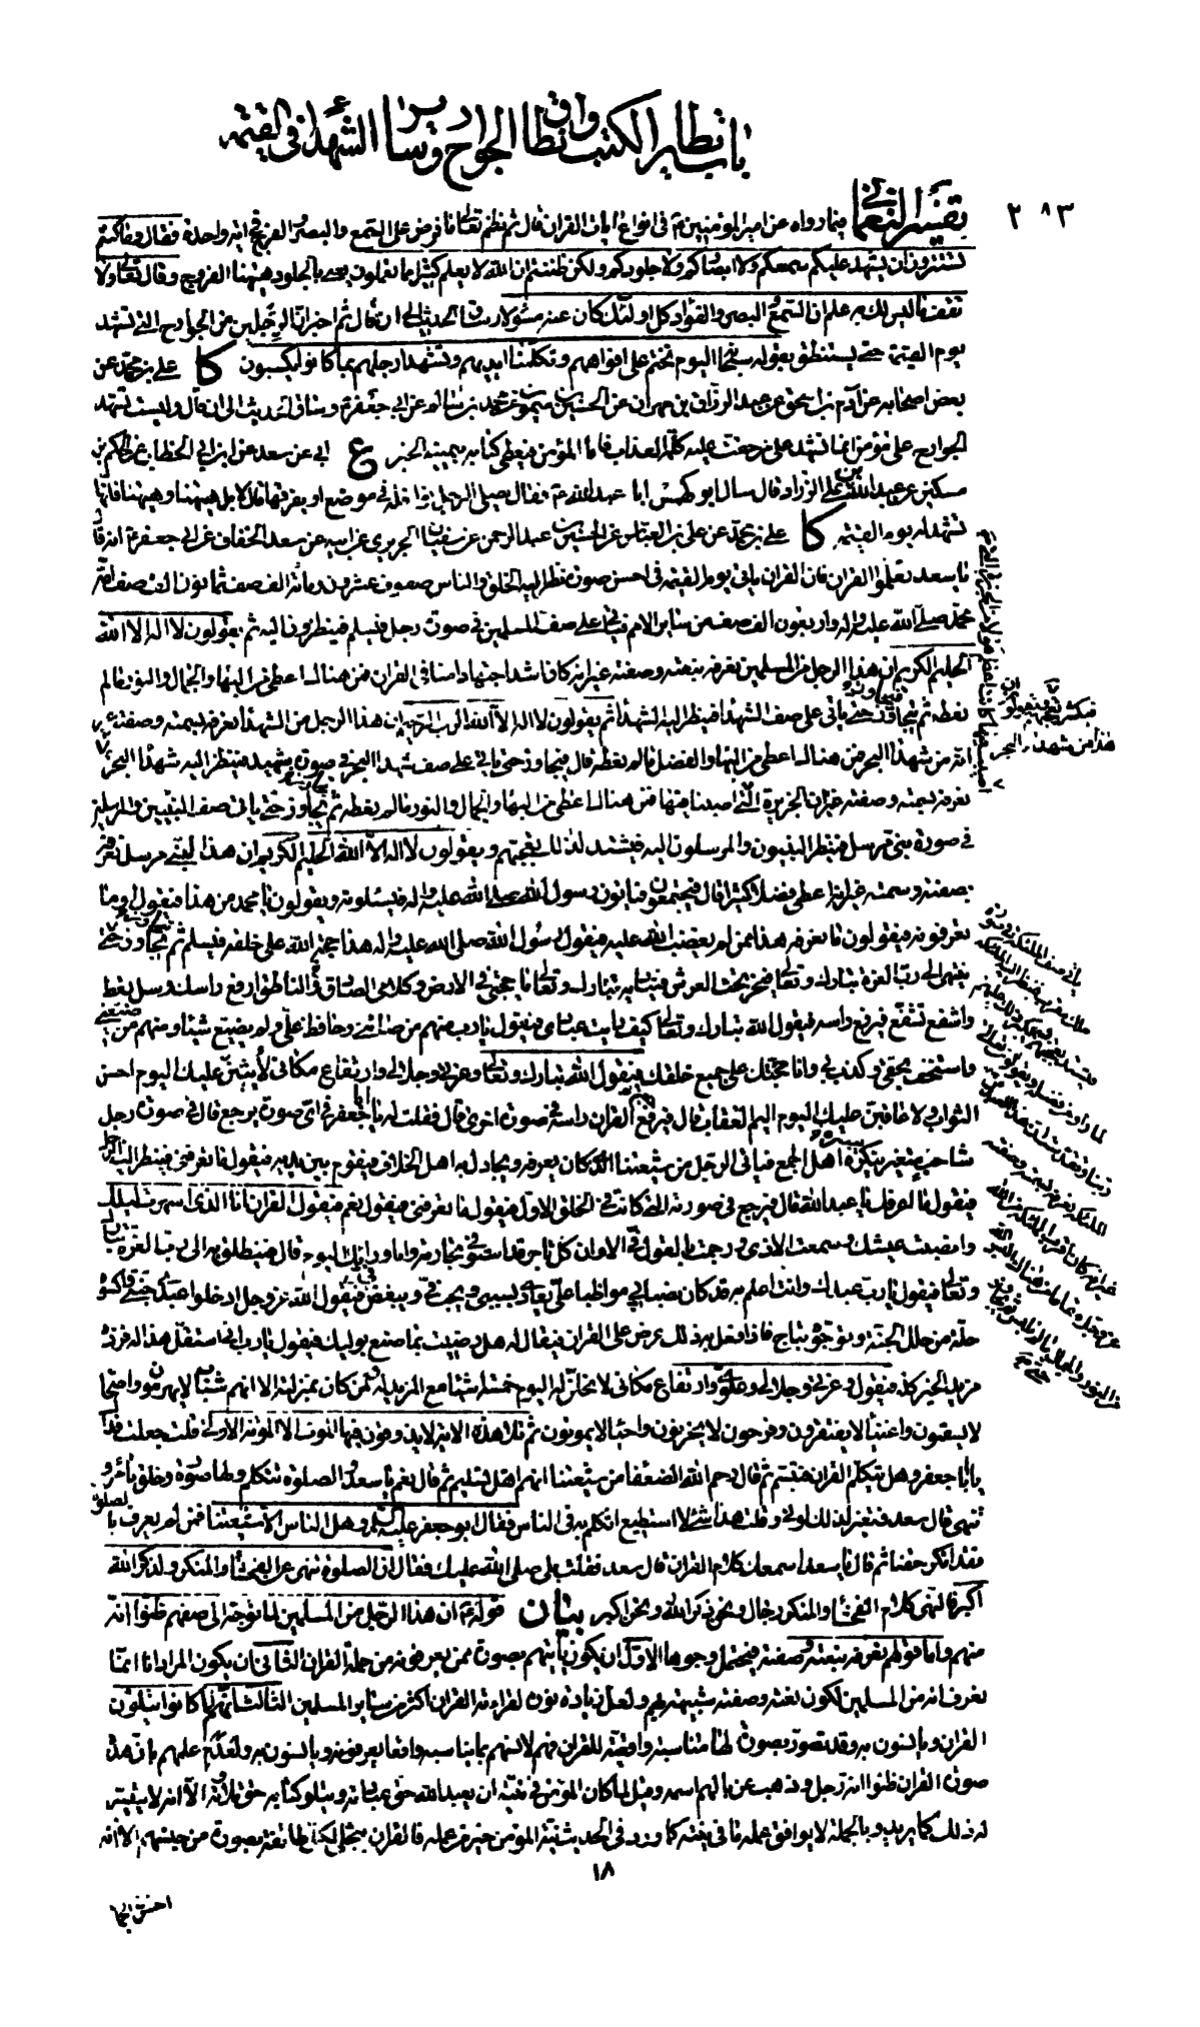 باب تطاير الكتب وانطاق الجوارح وساير الشهداء في القيمة
٢٨٣
تفسير النعماني فيما رواه عن امير المؤمنين ع في انواع ايات القران قال ثم نظم تعالى ما فرض على السمع والبصر الفرج في اية واحدة فقال وما كنتم
تستترون ان يشهد عليكم سمعكم ولا ابصاركم ولا جلودكم ولكن ظننتم ان الله لا يعلم كثيرا مما تعملون يعنى بالجلود هيهنا الفروج وقال تعالى ولا
تقف ما ليس لك به علم ان السمع والبصر والفؤاد كل اولئك كان عنه مسئولا وساق الحديث الى ان قال ثم اخبر ان الرجلين من الجوارح التي تشهد
يوم القيمة حتى يستنطق بقوله سبحانه اليوم نختم على افواههم وتكلمنا ايديهم وتشهد ارجلهم بما كانوا يكسبون كا على بن محمد عن
بعض اصحابه عن آدم بن اسحق عن عبد الرزاق بن مهران عن الحسين بن ميمون عن محمد بن سالم عن ابي جعفر ع وساق الحديث الى ان قال وليست تشهد
الجوارح على مؤمن انما تشهد على من حقت عليه كلمة العذاب فاما المؤمن فيعطى كتابه بيمينه الخبر ع ابي عن سعد عن ابن ابي الخطاب عن الحكم بن
مسكين عن عبد الله بن على الزراد قال سال ابو كهمس ابا عبد الله ع فقال يصلى الرجل نوافله في موضع او يفرقها قال لا بل هيهنا وهيهنا فانها
تشهد له يوم القيمة كا على بن محمد عن على بن العباس عن الحسين بن عبد الرحمن عن سفيان الحريرى عن ابيه عن سعد الخفاف عن ابي جعفر ع انه قال
يا سعد تعلموا القران فان القران ياتى يوم القيمة في احسن صورة نظر اليه الخلق والناس صفوف عشرون ومائة الف صف ثمانون الف صف امة
محمد صلى الله عليه واله واربعون الف صف من سائر الامم فياتى على صف المسلمين في صورة رجل فيسلم فينظرون اليه ثم يقولون لا اله الا الله
الحليم الكريم ان هذا الرجل من المسلمين نعرفه بنعته وصفته غير انه كان اشد اجتهادا منا في القران فمن هناك اعطى من البهاء والجمال والنور ما لم
نعطه ثم يتجاوز حتى ياتى على صف الشهداء فينظر اليه الشهداء ثم يقولون لا اله الا الله الرب الرحيم ان هذا الرجل من الشهداء نعرفه بسمته وصفته غير
انه من شهداء البحر فمن هناك اعطى من البهاء والفضل ما لم نعطه قال فيتجاوز حتى ياتى على صف شهداء البحر في صورة شهيد فينظر اليه شهداء البحر
نعرفه بسمته وصفته غير ان الجزيرة التي اصيب فيها فمن هناك اعطى من البهاء والجمال والنور ما لم نعطه ثم يتجاوز حتى ياتى صف النبيين والمرسلين
في صورة نبى مرسل فينظر النبيون والمرسلون اليه فيشتد لذلك تعجبهم ويقولون لا اله الا الله الحليم الكريم ان هذا لنبي مرسل نعرفه
بصفته وسمته غير انه اعطى فضلا كثيرا قال فيجتمعون فياتون رسول الله صلى الله عليه واله فيسئلونه ويقولون يا محمد من هذا فيقول وما
تعرفونه فيقولون ما نعرفه هذا ممن لم يغضب الله عليه فيقول رسول الله صلى الله عليه واله هذا حجة الله على خلقه فيسلم ثم يتجاوز حتى
ينتهى الى رب العزة تبارك وتعالى فيخر تحت العرش فيناديه تبارك وتعالى يا حجتى في الارض وكلامى الصادق الناطق ارفع راسك وسل تعط
واشفع تشفع فيرفع راسه فيقول الله تبارك وتعالى كيف رايت عبادى فيقول يا رب منهم من صاننى وحافظ على ولم يضيع شيئا ومنهم من ضيعنى
واستخف بحقى وكذب بى وانا حجتك على جميع خلقك فيقول الله تبارك وتعالى وعزتى وجلالى وارتفاع مكانى لاثيبن عليك اليوم احسن
الثواب ولاعاقبن عليك اليوم اليم العقاب قال فيرفع القران راسه في صورة اخرى قال فقلت له يا ابا جعفر في اى صورة يرجع قال في صورة رجل
شاحب متغير ينكره اهل الجمع فياتى الرجل من شيعتنا الذى كان يعرفه ويجادل به اهل الخلاف فيقوم بين يديه فيقول ما تعرفنى فينظر اليه الرجل
فيقول ما اعرفك يا عبد الله قال فيرجع في صورته التي كانت في الخلق الاول فيقول ما تعرفنى فيقول نعم فيقول القران انا الذى اسهرت ليلك
وانصبت عيشك وسمعت الاذى ورجمت بالقول في الا وان كل تاجر قد استوفى تجارته وانا وراءك اليوم قال فينطلق به الى رب العزة تبارك
وتعالى فيقول يا رب عبدك وانت اعلم به قد كان نصبا بى مواظبا على يعادى بسببى ويحب في ويبغض فيقول الله عز وجل ادخلوا عبدى جنتى واكسوه
حلة من حلل الجنة وتوجوه بتاج فاذا فعل به ذلك عرض على القران فيقال له هل رضيت بما صنع بوليك فيقول يا رب انى استقل هذا له فزده
مزيد الخير كله فيقول وعزتى وجلالى وعلوى وارتفاع مكانى لانحلن له اليوم خمسة اشياء مع المزيد له ولمن كان بمنزلته الا انهم شباب لا يهرمون واصحاء
لا يسقمون واغنياء لا يفتقرون وفرحون لا يحزنون واحياء لا يموتون ثم تلا هذه الاية لا يذوقون فيها الموت الا الموتة الاولى قلت جعلت فداك
يا ابا جعفر وهل يتكلم القران فتبسم ثم قال رحم الله الضعفاء من شيعتنا انهم اهل تسليم ثم قال نعم يا سعد والصلوة تتكلم ولها صورة وخلق تامر و
تنهى قال سعد فتغير لذلك لونى وقلت هذا شئ لا استطيع اتكلم به في الناس فقال ابو جعفر عليه السلم وهل الناس الا شيعتنا فمن لم يعرف بالصلوة
فقد انكر حقنا ثم قال يا سعد اسمعك كلام القران قال سعد فقلت بلى صلى الله عليك فقال ان الصلوة تنهى عن الفحشاء والمنكر ولذكر الله
اكبر فالنهى كلام الفحشاء والمنكر رجال ونحن ذكر الله ونحن اكبر بيان قوله ع ان هذا الرجل من المسلمين لما توجه الى صفهم ظنوا انه
منهم واما قولهم نعرفه بنعته وصفته فيحتمل وجوها الاول ان يكون ياتيهم بصورة من يعرفونه من حملة القران الثانى ان يكون المراد انا انما
نعرف انه من المسلمين لكون نعته وصفته شبيهة بهم ولعل زيادة نوره لقراءته القران اكثر من سائر المسلمين الثالث انهم لما كانوا يتلون
القران ويانسون به وقد تصور بصورة لها مناسبة واقعية للقران فهم لانسهم بما يناسبه واقعا يعرفونه ويانسون به ولعدم علمهم بان هذه
صورة القران ظنوا انه رجل وذهب عن بالهم اسمه وقيل لما كان المؤمن في نيته ان يعبد الله حق عبادته ويتلو كتابه حق تلاوته الا انه لا يتيسر
له ذلك كما يريد وبالجملة لا يوافق عمله ما في نيته كما ورد في الحديث نية المؤمن خير من عمله فالقران يتجلى لكل طائفة بصورة من جنسهم الا انه
١٨
احسن في الجما